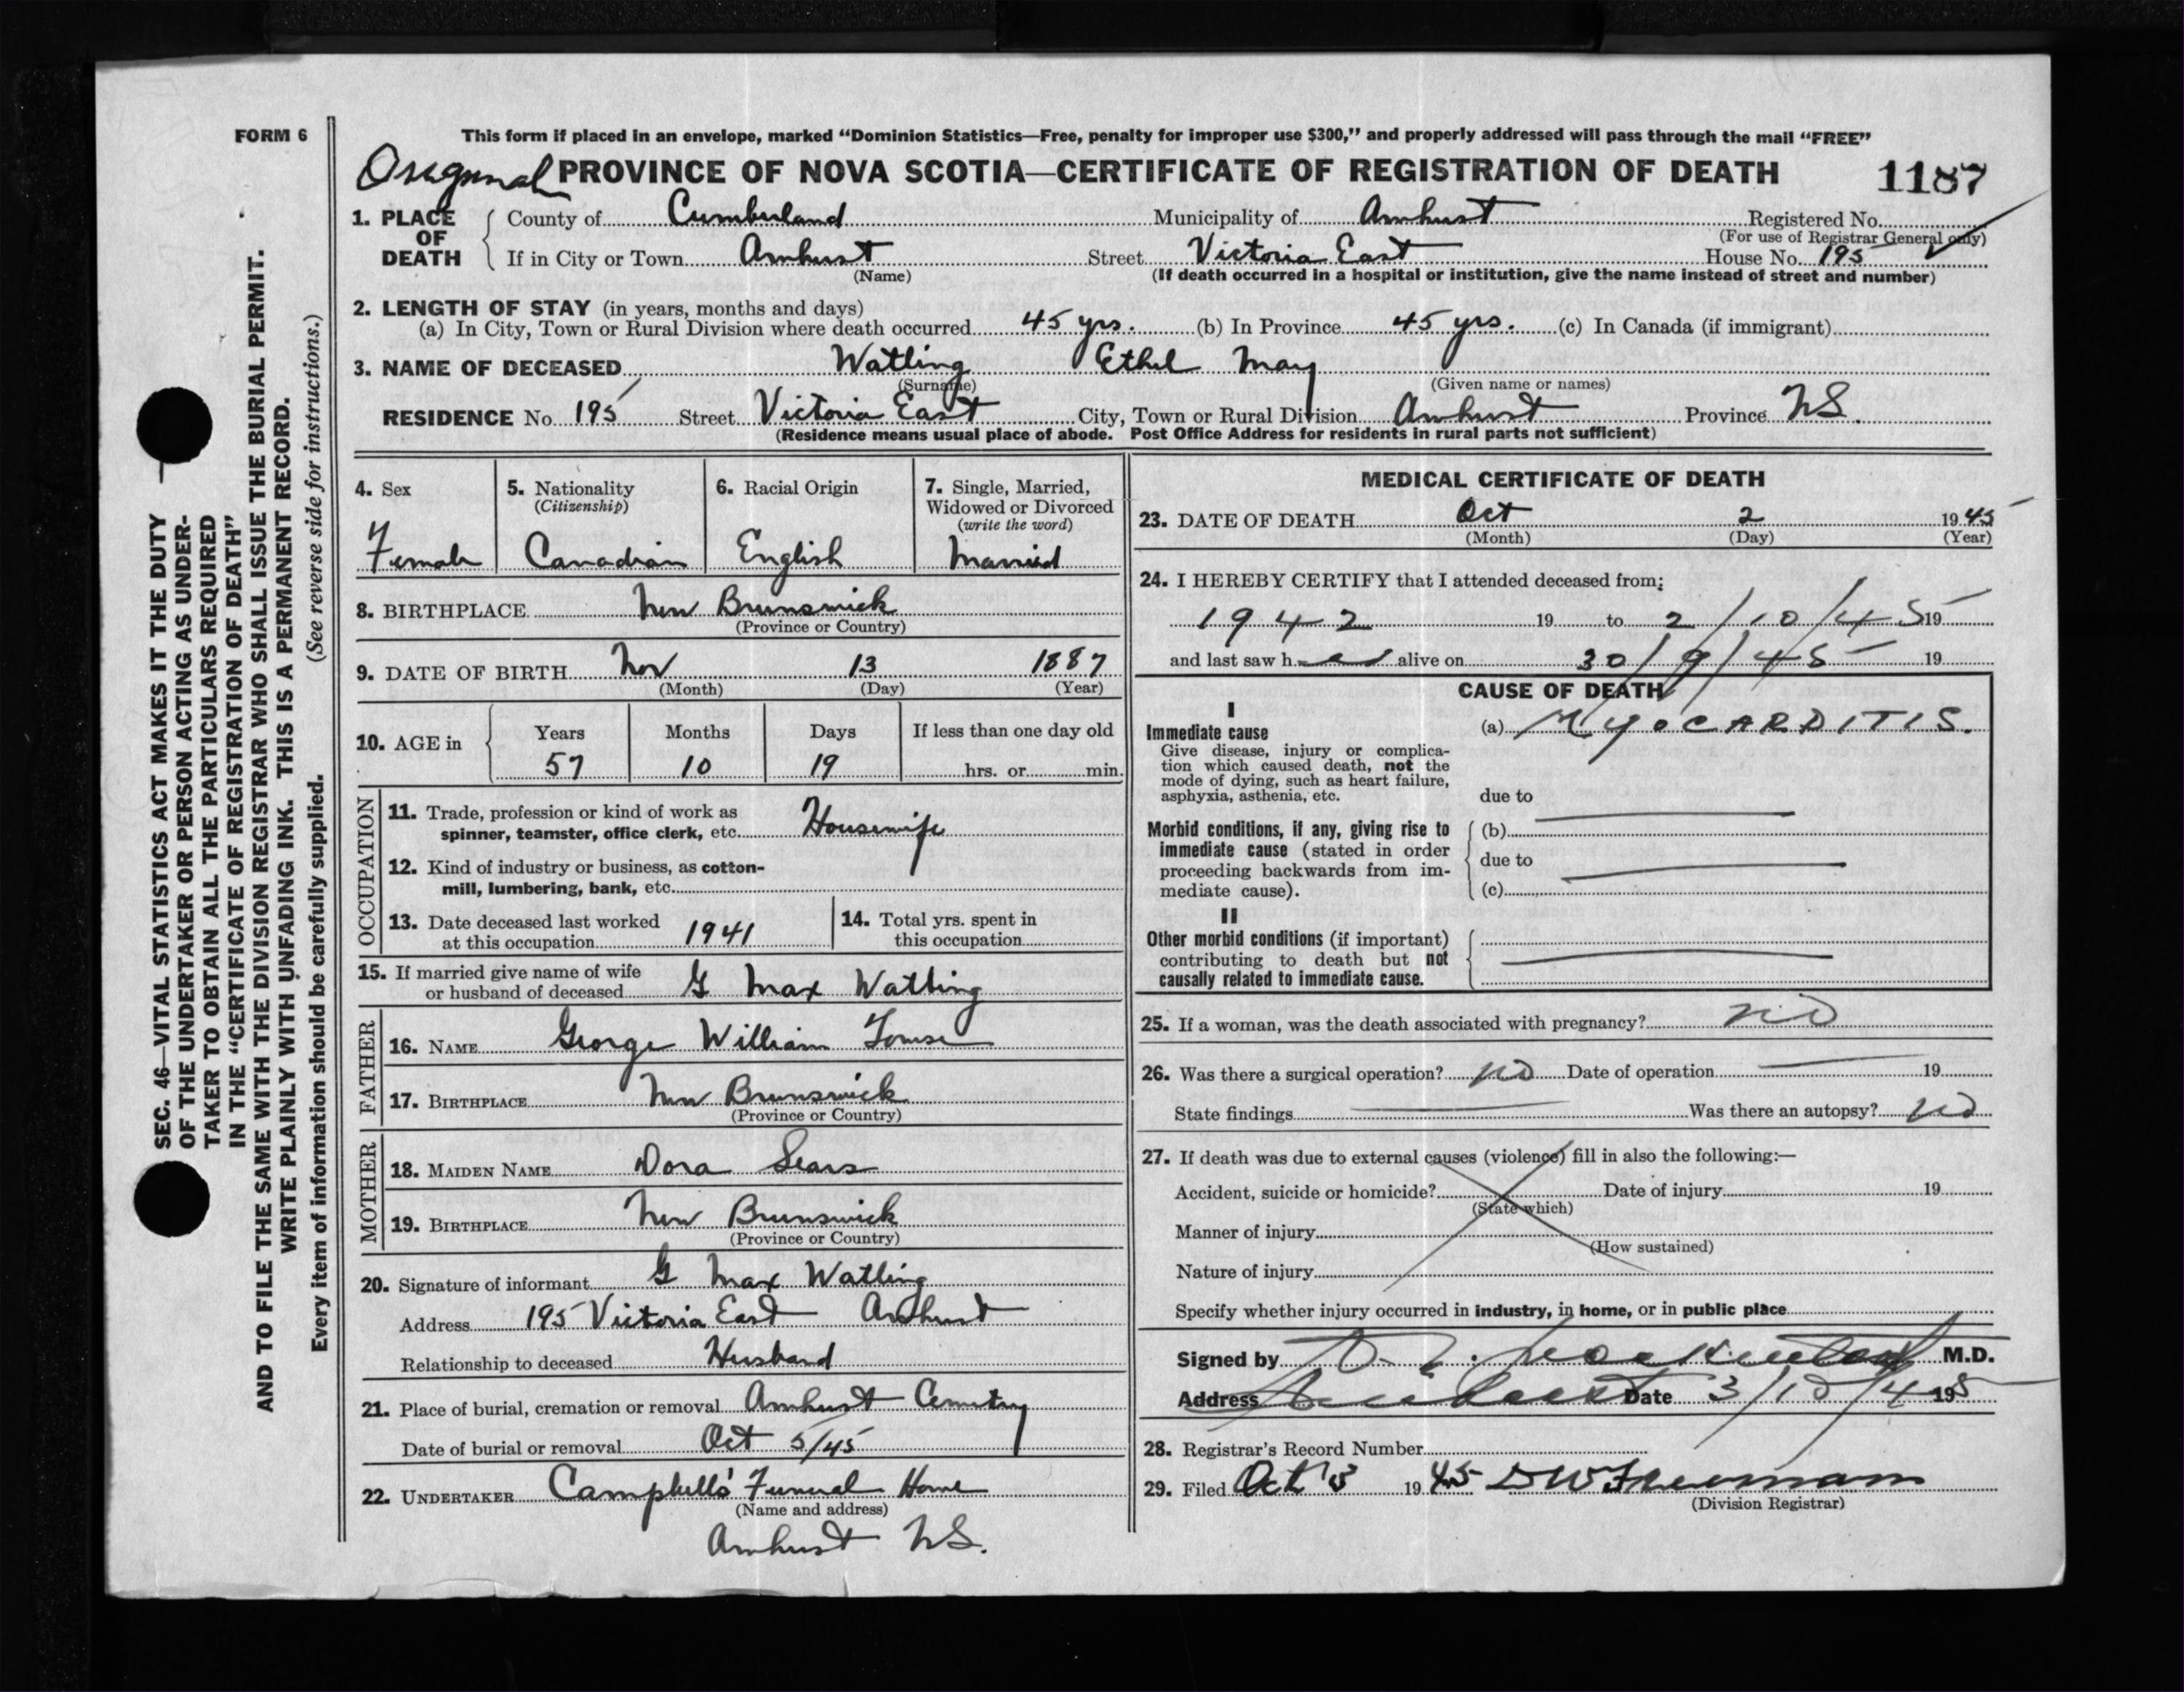 FORM 6
This form if placed in an envelope, marked “Dominion Statistics—Free, penalty for improper use $300,” and properly addressed will pass through the mail “FREE”
Original PROVINCE OF NOVA SCOTIA—CERTIFICATE OF REGISTRATION OF DEATH 1187
1. PLACE OF DEATH County of Cumberland Municipality of Amherst Registered No.
(For use of Registrar General only)
If in City or Town Amherst Street Victoria East House No. 195
(Name) (If death occurred in a hospital or institution, give the name instead of street and number)
2. LENGTH OF STAY (in years, months and days)
(a) In City, Town or Rural Division where death occurred 45 yrs. (b) In Province 45 yrs. (c) In Canada (if immigrant)
3. NAME OF DECEASED Watling Ethel May
(Surname) (Given name or names)
RESIDENCE No. 195 Street Victoria East City, Town or Rural Division Amherst Province N.S.
(Residence means usual place of abode. Post Office Address for residents in rural parts not sufficient)
4. Sex
Female
5. Nationality
(Citizenship)
Canadian
6. Racial Origin
English
7. Single, Married,
Widowed or Divorced
(write the word)
Married
8. BIRTHPLACE New Brunswick
(Province or Country)
9. DATE OF BIRTH Nov 13 1887
(Month) (Day) (Year)
10. AGE in Years Months Days If less than one day old
57 10 19 hrs. or min.
OCCUPATION
11. Trade, profession or kind of work as
spinner, teamster, office clerk, etc. Housewife
12. Kind of industry or business, as cotton-
mill, lumbering, bank, etc.
13. Date deceased last worked
at this occupation 1941
14. Total yrs. spent in
this occupation
15. If married give name of wife
or husband of deceased G Max Watling
FATHER
16. NAME George William
17. BIRTHPLACE New Brunswick
(Province or Country)
MOTHER
18. MAIDEN NAME Dora Sears
19. BIRTHPLACE New Brunswick
(Province or Country)
20. Signature of informant G Max Watling
Address 195 Victoria East Amherst
Relationship to deceased Husband
21. Place of burial, cremation or removal Amherst Cemetry
Date of burial or removal Oct 5/45
22. UNDERTAKER Campbell's Funeral Home
(Name and address)
Amherst N.S.
MEDICAL CERTIFICATE OF DEATH
23. DATE OF DEATH Oct 2 1945
(Month) (Day) (Year)
24. I HEREBY CERTIFY that I attended deceased from:
1942 19 to 2/10/45 19
and last saw her alive on 30/9/45 19
CAUSE OF DEATH
I
Immediate cause (a) MYOCARDITIS.
Give disease, injury or complica-
tion which caused death, not the
mode of dying, such as heart failure,
asphyxia, asthenia, etc. due to
Morbid conditions, if any, giving rise to (b)
immediate cause (stated in order
proceeding backwards from im- due to
mediate cause). (c)
II
Other morbid conditions (if important)
contributing to death but not
causally related to immediate cause.
25. If a woman, was the death associated with pregnancy? no
26. Was there a surgical operation? no Date of operation 19
State findings Was there an autopsy? no
27. If death was due to external causes (violence) fill in also the following:—
Accident, suicide or homicide? Date of injury 19
(State which)
Manner of injury
(How sustained)
Nature of injury
Specify whether injury occurred in industry, in home, or in public place
Signed by M.D.
Address Amherst Date 3/10/45
28. Registrar's Record Number
29. Filed Oct 3 1945
(Division Registrar)
SEC. 46—VITAL STATISTICS ACT MAKES IT THE DUTY
OF THE UNDERTAKER OR PERSON ACTING AS UNDER-
TAKER TO OBTAIN ALL THE PARTICULARS REQUIRED
IN THE “CERTIFICATE OF REGISTRATION OF DEATH”
AND TO FILE THE SAME WITH THE DIVISION REGISTRAR WHO SHALL ISSUE THE BURIAL PERMIT.
WRITE PLAINLY WITH UNFADING INK. THIS IS A PERMANENT RECORD.
Every item of information should be carefully supplied. (See reverse side for instructions.)